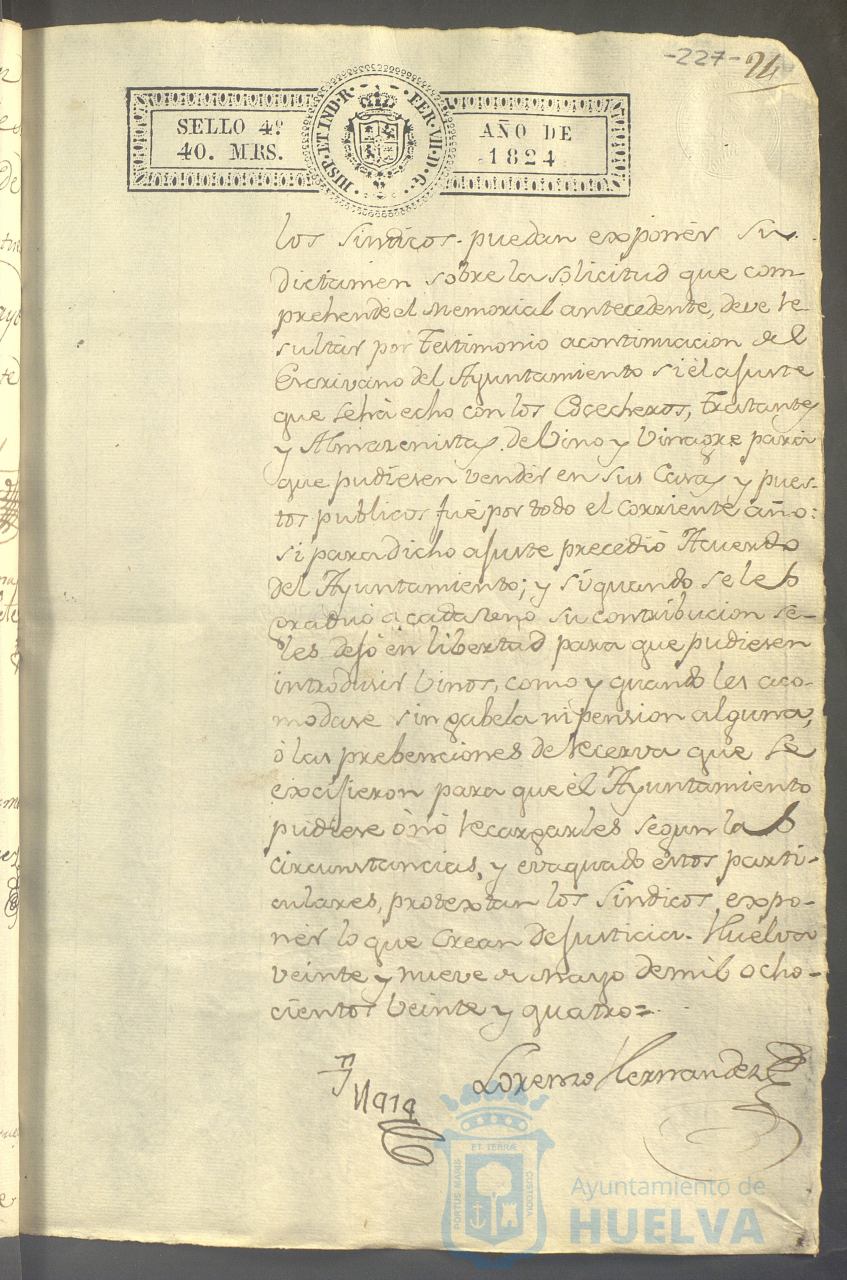 -227- 24
SELLO 4º
40. MRS.
HISP. ET IND. R. FER. VII. D. G.
AÑO DE
1824
los Sindicos puedan exponér su
dictamen sobre la solicitud que com-
prehende el Memorial antecedente, deve re
sultár por Testimonio acontinuacion del
Escrivano del Ayuntamiento si el ajuste
que se há echo con los Cocecheros, Tratantes
y Almazenistas de Vino y Vinagre para
que pudiesen vendér en sus Casas y pues-
tos publicos fué por todo el corriente año:
si para dicho ajuste precedió Acuerdo
del Ayuntamiento; y si quando se les
graduó a cada uno su contribucion se-
les dejó en libertad para que pudiesen
introducir Vinos, como y quando les aco-
modase sin gabela ni pension alguna,
ó las prebenciones de recerva que se
para que el Ayuntamiento
pudiese ó nó recargarles segun las
circunstancias, y evaquado estos parti-
culares, protextan los Sindicos expo-
nér lo que crean de justicia. Huelva
veinte y nueve de mayo de mil ocho-
cientos veinte y quatro=
Lorenzo Hernandez
ET TERRÆ
PORTUS MARIS
CUSTODIA
Ayuntamiento de
HUELVA